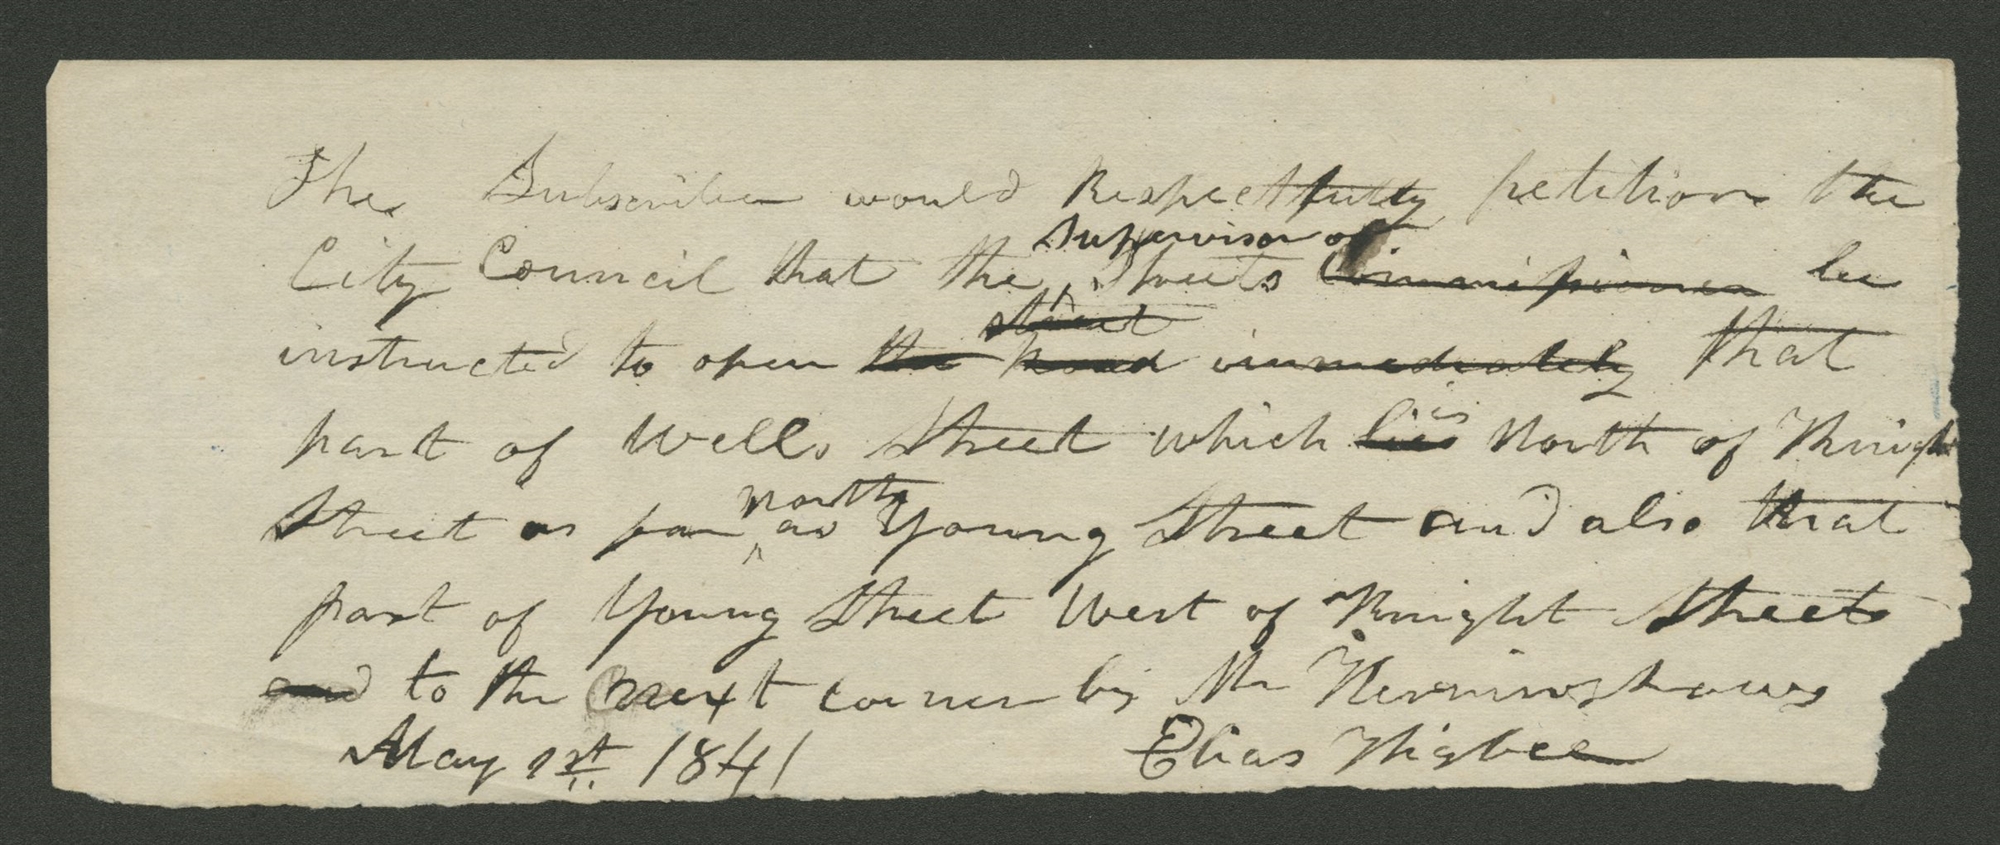 The Subscriber would Respectfully petition the
Supervisor of
City Council that the ^ Streets Commissioner be
street
instructed to open the Road immediately that
is
part of Wells Street which lies North of Knight
north
Street as far ^ as Young Street and also that
part of Young Street West of Knight Street
and to the next corner by Mr
May 1st 1841 Elias Higbee